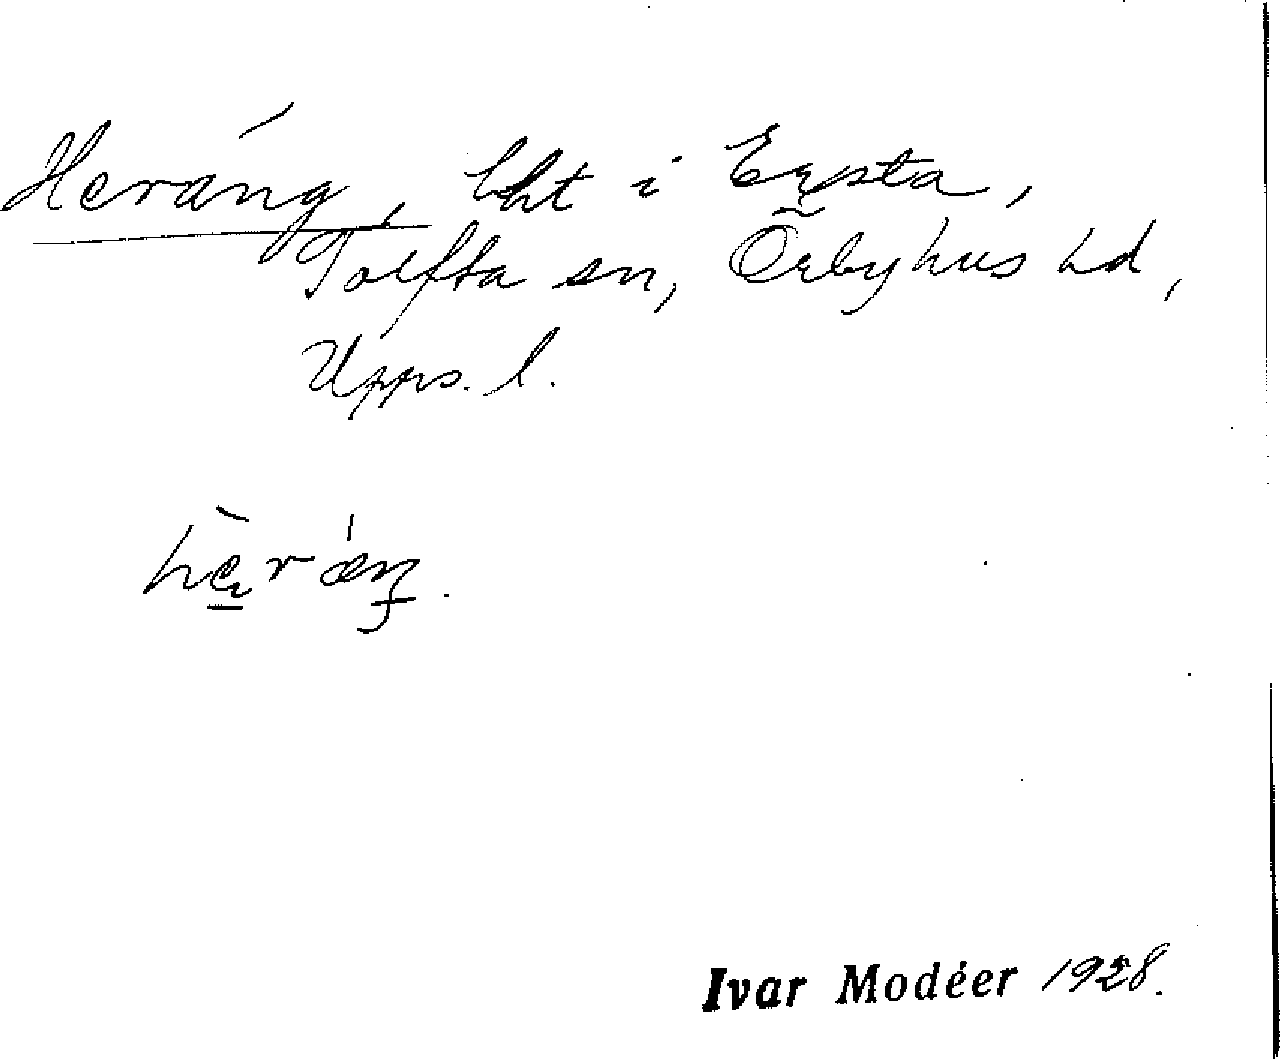 Heräng, lht i Eysta,
Tolfta sn, Örbyhus hd,
Upps. l.
Ivar Modéer 1928.